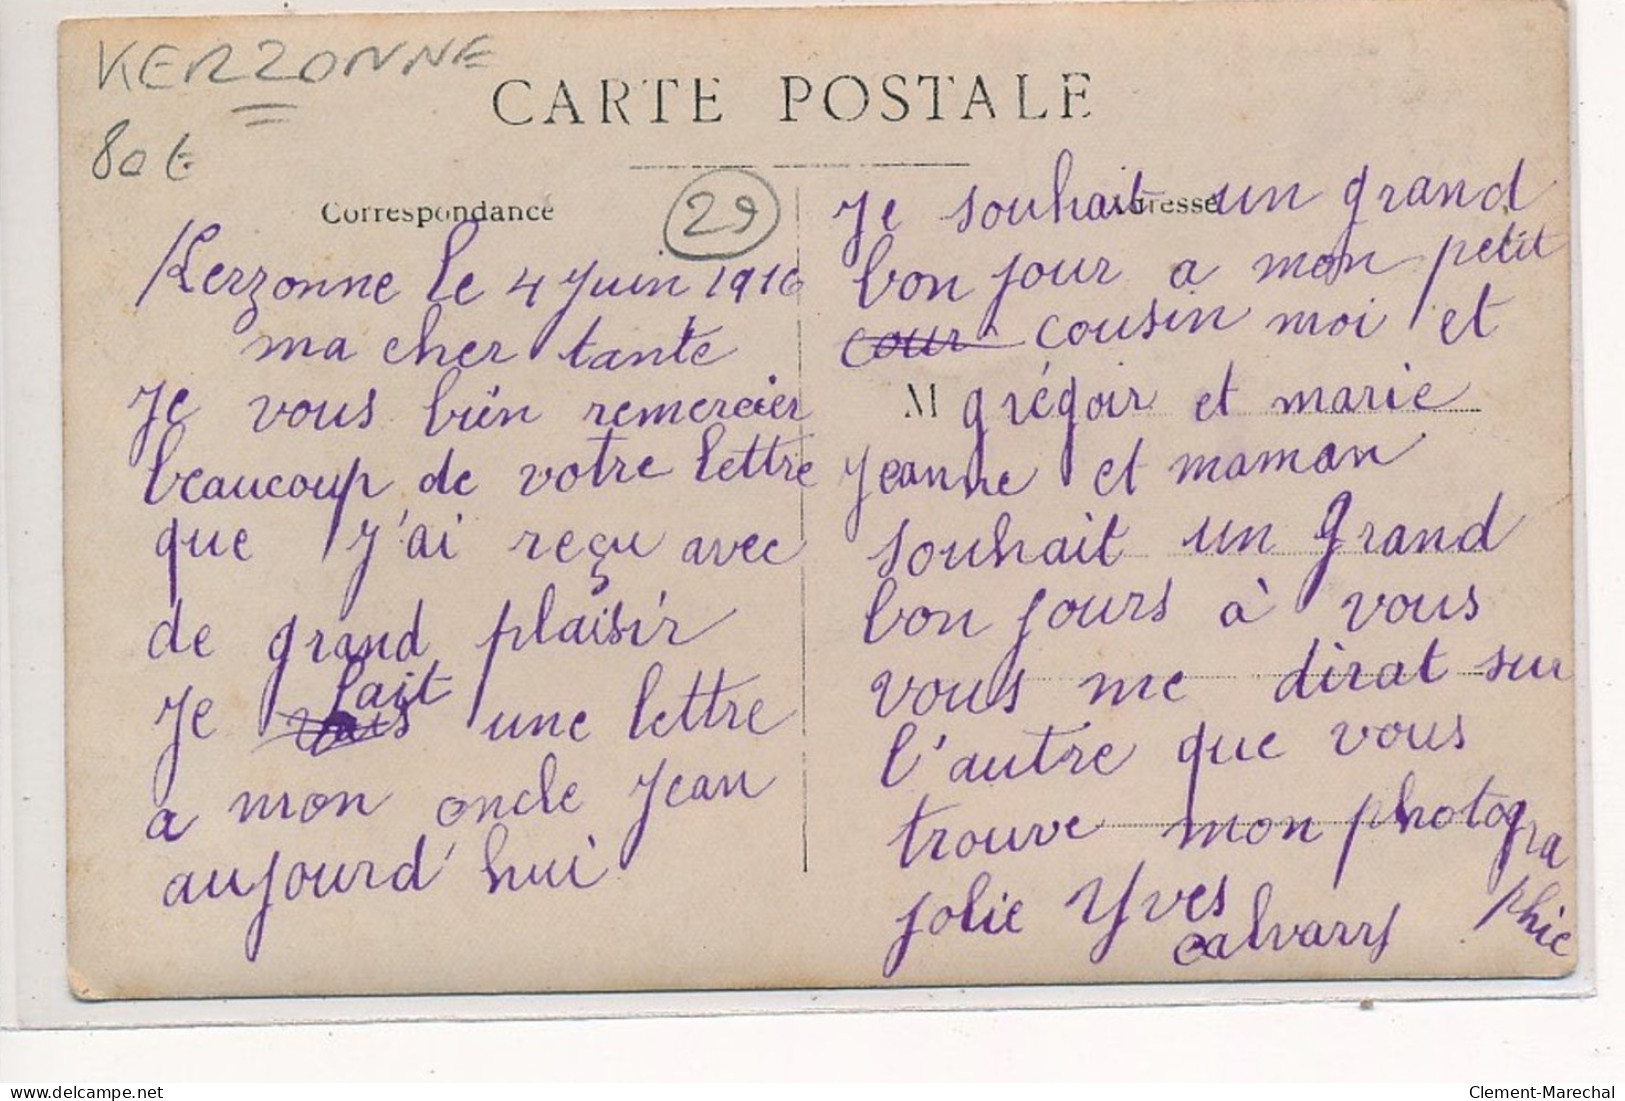 KERZONNE
80 €
CARTE POSTALE
Correspondance
29
Kerzonne le 4 Juin 1916
ma cher tante
Je vous bien remercier
beaucoup de votre lettre
que j'ai reçu avec
de grand plaisir
Je fait une lettre
a mon oncle Jean
aujourd'hui
Adresse
Je souhait un grand
bon jour a mon petit
cour cousin moi et
M grégoir et marie
Jeanne et maman
souhait un grand
bon jours à vous
vous me dirat sur
l'autre que vous
trouve mon photogra
phie
jolie Yves
calvarry
Clement-Marechal